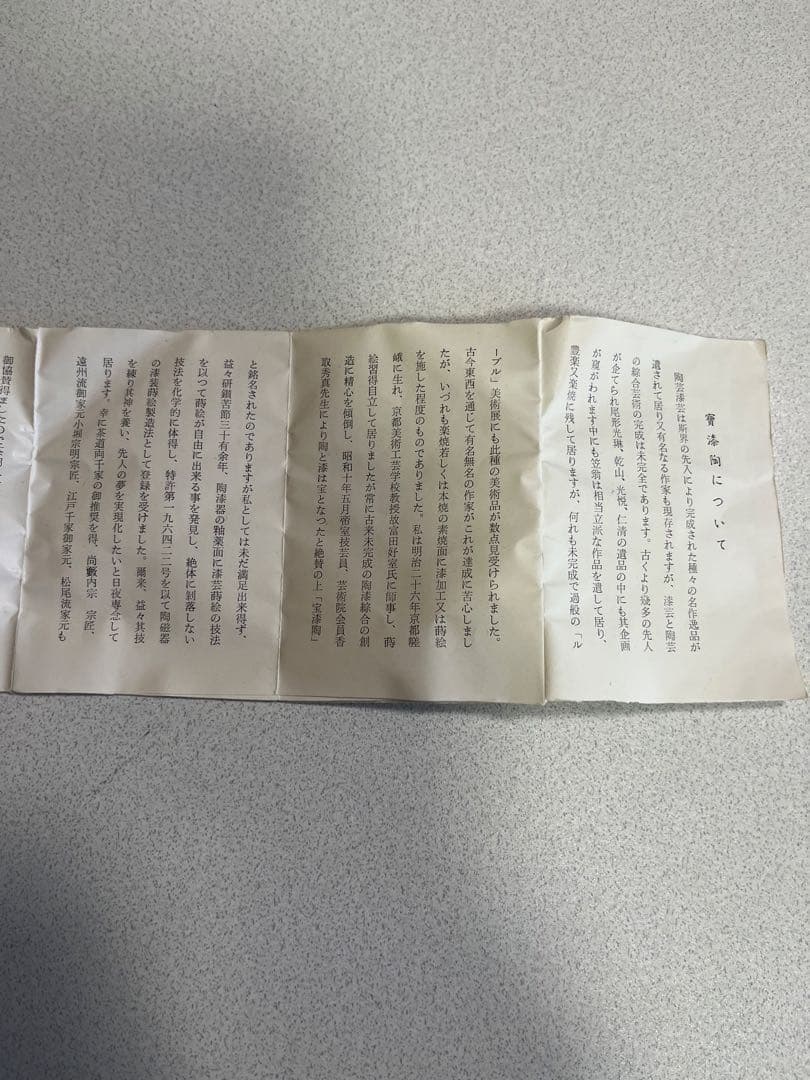 寳漆陶について
陶芸漆芸は斯界の先人により完成された種々の名作逸品が
遺されて居り又有名なる作家も現存されますが、漆芸と陶芸
の綜合芸術の完成は未完全であります。古くより幾多の先人
が企てられ尾形光琳、乾山、光悦、仁清の遺品の中にも其企画
が窺がわれます中にも笠翁は相当立派な作品を遺して居り、
豊楽又楽焼に残して居りますが、何れも未完成で過般の「ル
ーブル」美術展にも此種の美術品が数点見受けられました。
古今東西を通じて有名無名の作家がこれが達成に苦心しまし
たが、いづれも楽焼若しくは本焼の素焼面に漆加工又は蒔絵
を施した程度のものでありました。私は明治二十六年京都嵯
峨に生れ、京都美術工芸学校教授故富田好室氏に師事し、蒔
絵習得自立して居りましたが常に古来未完成の陶漆綜合の創
造に精心を傾倒し、昭和十年五月帝室技芸員、芸術院会員香
取秀真先生により陶と漆は宝となつたと絶賛の上「宝漆陶」
と銘名されたのでありますが私としては未だ満足出来得ず、
益々研鑚苦節三十有余年、陶漆器の釉薬面に漆芸蒔絵の技法
を以つて蒔絵が自由に出来る事を発見し、絶体に剝落しない
技法を化学的に体得し、特許第一九六四二二号を以て陶磁器
の漆装蒔絵製造法として登録を受けました。爾来、益々其技
を練り其神を養い、先人の夢を実現化したいと日夜専念して
居ります。幸に茶道両千家の御推奨を得、尚藪内宗 宗匠、
遠州流御家元小堀宗明宗匠、江戸千家御家元、松尾流家元も
御協賛得ましたので